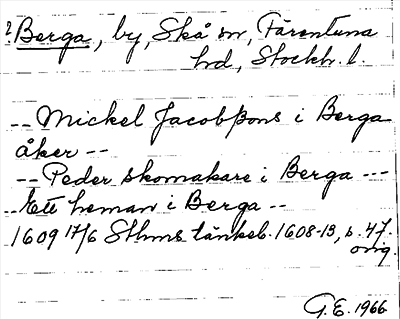 ? Berga, by, Skå sn, Färentuna
hd, Stockh. l.
-- Mickel Jacobßons i Berga
åker --
-- Peder skomakare i Berga ---
-- Ett heman i Berga --
1609 17/6 Sthms tänkeb. 1608-13, s. 47.
orig.
G.E. 1966